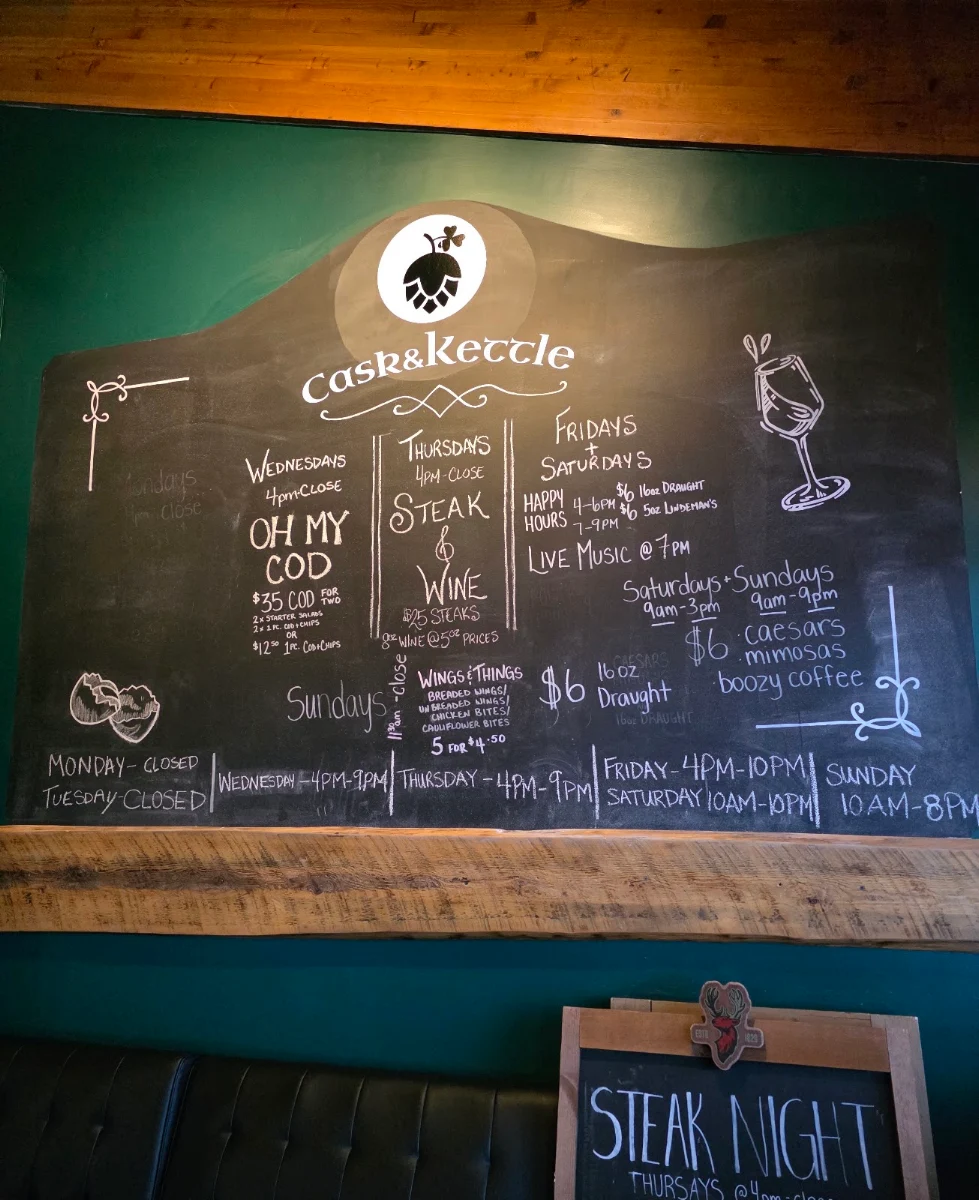 Cask&Kettle
Sundays
4pm-close
WEDNESDAYS
4pm-CLOSE
OH MY
COD
$35 COD FOR TWO
2x STARTER SALADS
2x 1PC. COD+CHIPS
OR
$12.50 1PC. COD+CHIPS
THURSDAYS
4PM-CLOSE
STEAK
&
WINE
$25 STEAKS
8oz WINE @ 5oz PRICES
FRIDAYS
+
SATURDAYS
HAPPY HOURS
4-6PM
7-9PM
$6 16oz DRAUGHT
$6 5oz LINDEMAN'S
LIVE MUSIC @ 7PM
Saturdays + Sundays
9am-3pm 9am-9pm
$6 · caesars
· mimosas
· boozy coffee
Sundays
11am - close
WINGS & THINGS
BREADED WINGS/
UNBREADED WINGS/
CHICKEN BITES/
CAULIFLOWER BITES
5 FOR $4.50
$6 16oz
Draught
CAESARS
16oz DRAUGHT
MONDAY- CLOSED
TUESDAY-CLOSED
WEDNESDAY-4PM-9PM
THURSDAY-4PM-9PM
FRIDAY-4PM-10PM
SATURDAY 10AM-10PM
SUNDAY
10AM-8PM
STEAK NIGHT
THURSAYS @ 4pm-close